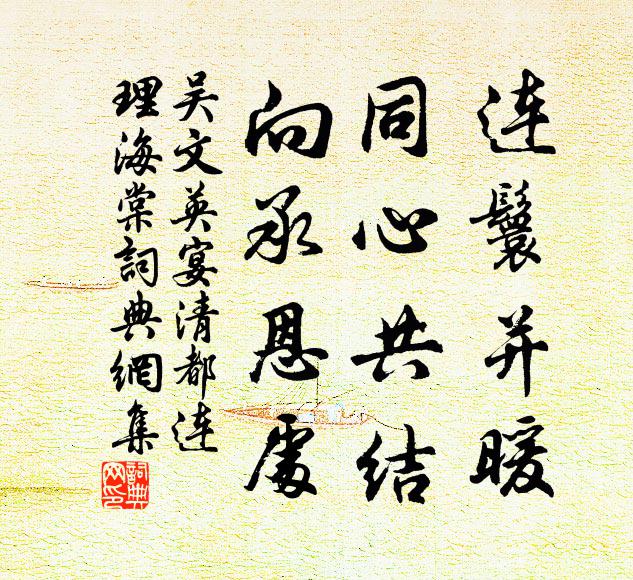 连鬟并暖
同心共结
向承恩處
吴文英宴清都连
理海棠詞典網集
詞典
网印